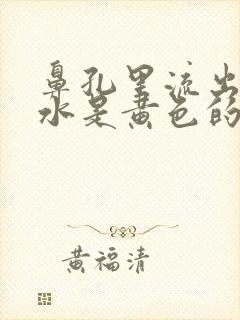 鼻孔里流出
水是黄色的
黄福清